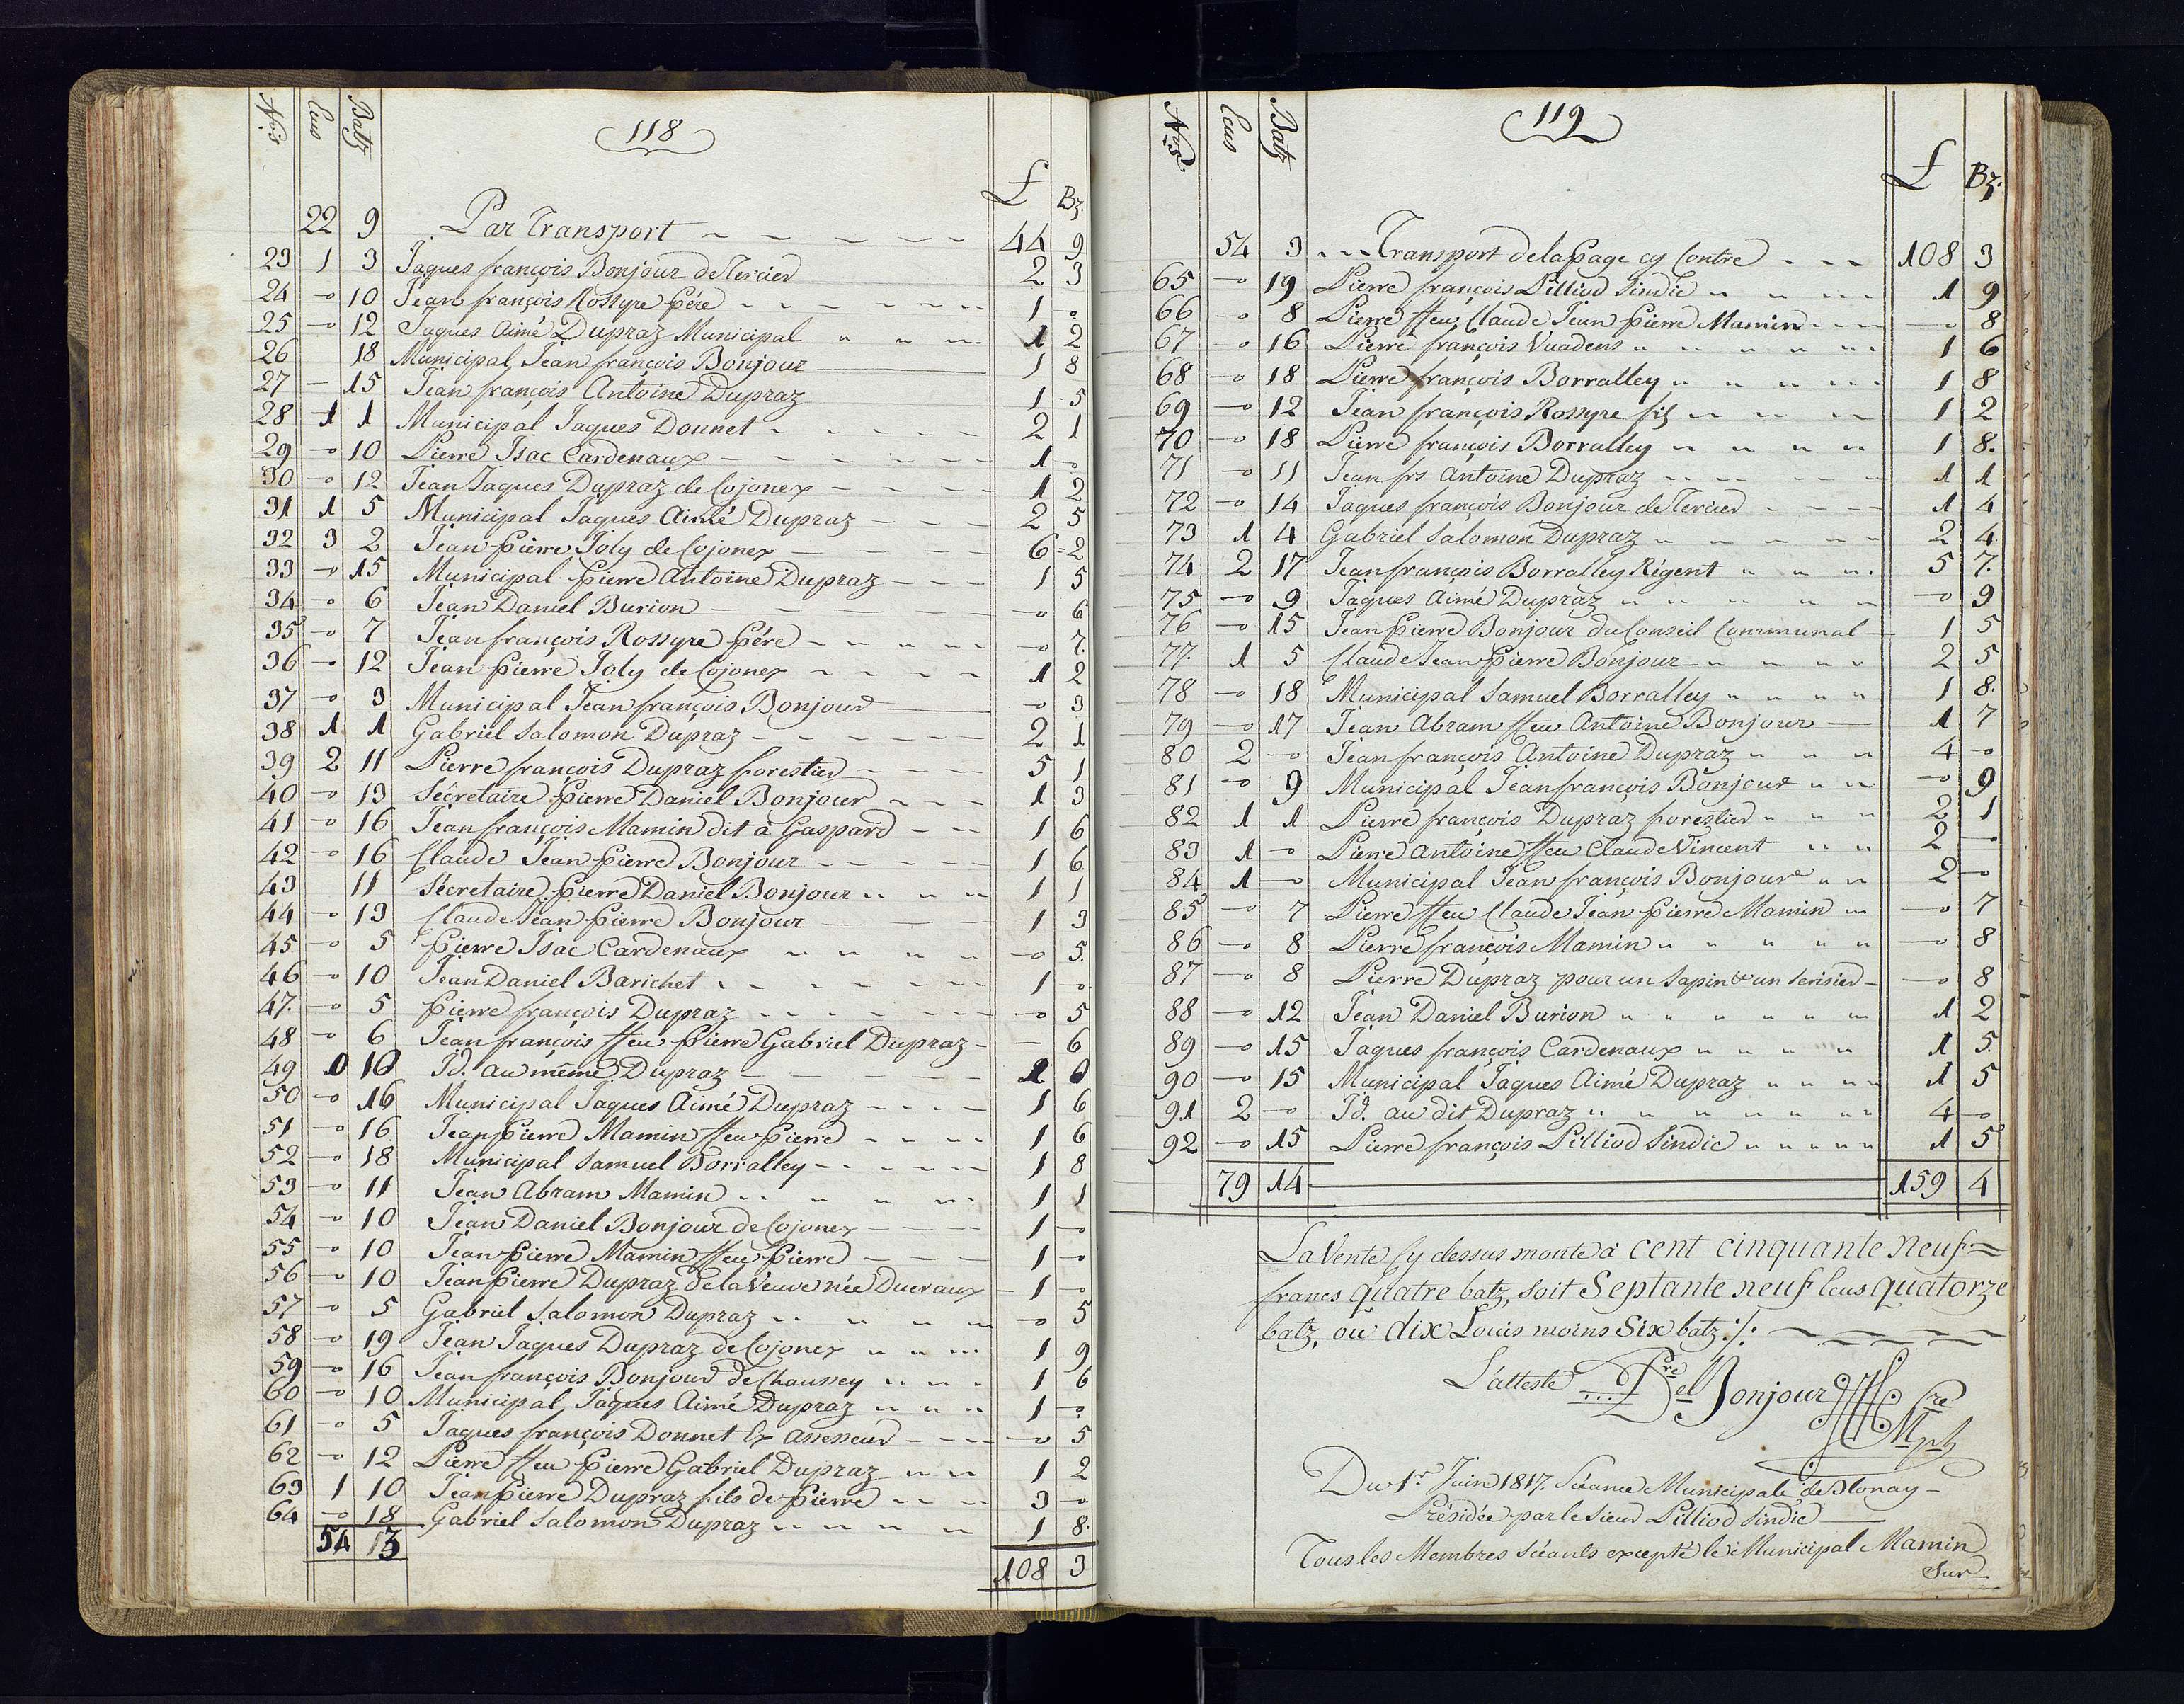 118
Nos Ecus Batz £ Bz.
22 9 Par Transport 44 9
23 1 3 Jaques françois Bonjour de Tercier 2 3
24 -o 10 Jean françois Rossyre Père 1 -o
25 -o 12 Jaques Aimé Dupraz Municipal 1 2
26 18 Municipal Jean françois Bonjour 1 8
27 - 15 Jean françois Antoine Dupraz 1 5
28 1 1 Municipal Jaques Donnet 2 1
29 -o 10 Pierre Isac Cardenaux 1 -o
30 -o 12 Jean Jaques Dupraz de Cojonex 1 2
31 1 5 Municipal Jaques Aimé Dupraz 2 5
32 3 2 Jean Pierre Joly de Cojonex 6=2
33 -o 15 Municipal Pierre Antoine Dupraz 1 5
34 -o 6 Jean Daniel Burion -o 6
35 -o 7 Jean françois Rossyre Père -o 7.
36 -o 12 Jean Pierre Joly de Cojonex 1 2
37 -o 3 Municipal Jean françois Bonjour -o 3
38 1 1 Gabriel Salomon Dupraz 2 1
39 2 11 Pierre françois Dupraz forestier 5 1
40 -o 13 Sécretaire Pierre Daniel Bonjour 1 3
41 -o 16 Jean françois Mamin dit à Gaspard 1 6
42 -o 16 Claude Jean Pierre Bonjour 1 6
43 11 Sécretaire Pierre Daniel Bonjour 1 1
44 -o 13 Claude Jean Pierre Bonjour 1 3
45 -o 5 Pierre Isac Cardenaux -o 5.
46 -o 10 Jean Daniel Barichet 1 -o
47. -o 5 Pierre françois Dupraz -o 5
48 -o 6 Jean françois ffeu Pierre Gabriel Dupraz - 6
49 0 10 Id. au même Dupraz 1 0
50 -o 16 Municipal Jaques Aimé Dupraz 1 6
51 -o 16 Jean Pierre Mamin ffeu Pierre 1 6
52 -o 18 Municipal Samuel Borralley 1 8
53 -o 11 Jean Abram Mamin 1 1
54 -o 10 Jean Daniel Bonjour de Cojonex 1 -o
55 -o 10 Jean Pierre Mamin ffeu Pierre 1 -o
56 -o 10 Jean Pierre Dupraz de la Veuve née Ducraux 1 -o
57 -o 5 Gabriel Salomon Dupraz -o 5
58 -o 19 Jean Jaques Dupraz de Cojonex 1 9
59 -o 16 Jean françois Bonjour de Chaussey 1 6
60 -o 10 Municipal Jaques Aimé Dupraz 1 -o
61 -o 5 Jaques françois Donnet Ex assesseur -o 5
62 -o 12 Pierre ffeu Pierre Gabriel Dupraz 1 2
63 1 10 Jean Pierre Dupraz fils de Pierre 3 -o
64 -o 18 Gabriel Salomon Dupraz 1 8.
54 13
108 3
119
Nos Ecus Batz £ Bz.
54 3 Transport de la Page cy Contre 108 3
65 -o 19 Pierre françois Pilliod Sindic 1 9
66 -o 8 Pierre ffeu Claude Jean Pierre Mamin -o 8
67 -o 16 Pierre françois Vuadens 1 6
68 -o 18 Pierre françois Borralley 1 8
69 -o 12 Jean françois Rossyre fils 1 2
70 -o 18 Pierre françois Borralley 1 8.
71 -o 11 Jean frs Antoine Dupraz 1 1
72 -o 14 Jaques françois Bonjour de Tercier 1 4
73 1 4 Gabriel Salomon Dupraz 2 4
74 2 17 Jean françois Borralley Régent 5 7.
75 -o 9 Jaques Aimé Dupraz -o 9
76 -o 15 Jean Pierre Bonjour du Conseil Communal 1 5
77. 1 5 Claude Jean Pierre Bonjour 2 5
78 -o 18 Municipal Samuel Borralley 1 8.
79 -o 17 Jean Abram ffeu Antoine Bonjour 1 7
80 2 -o Jean françois Antoine Dupraz 4 -o
81 -o 9 Municipal Jean françois Bonjour -o 9
82 1 1 Pierre françois Dupraz forestier 2 1
83 1 -o Pierre Antoine ffeu Claude Vincent 2 -o
84 1 -o Municipal Jean françois Bonjour 2 -o
85 -o 7 Pierre ffeu Claude Jean Pierre Mamin -o 7
86 -o 8 Pierre françois Mamin -o 8
87 -o 8 Pierre Dupraz pour un Sapin & un Serisier -o 8
88 -o 12 Jean Daniel Burion 1 2
89 -o 15 Jaques françois Cardenaux 1 5.
90 -o 15 Municipal Jaques Aimé Dupraz 1 5
91 2 -o Id. au dit Dupraz 4 -o
92 -o 15 Pierre françois Pilliod Sindic 1 5
79 14 159 4
La Vente Cy dessus monte à cent cinquante neuf=
francs quatre batz, soit Septante neuf Ecus quatorze
batz, ou dix Louis moins Six batz ./.
L'atteste Pre Del Bonjour Sre
Mpl
Du 1r Juin 1817. Séance Municipale de Blonay
Présidée par le Sieur Pilliod Sindic
Tous les Membres Séants excepté le Municipal Mamin
Sur